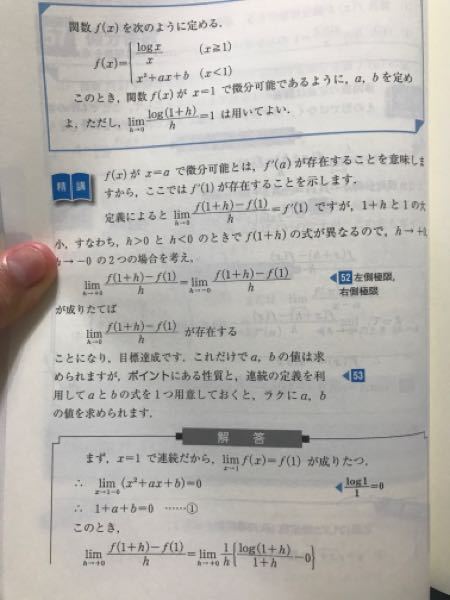 関数 f(x) を次のように定める.
f(x)={ log x / x (x≧1)
x²+ax+b (x<1)
このとき, 関数 f(x) が x=1 で微分可能であるように, a, b を定め
よ. ただし, lim_{h→0} log(1+h)/h =1 は用いてよい.
精講
f(x) が x=a で微分可能とは, f′(a) が存在することを意味しま
すから, ここでは f′(1) が存在することを示します.
定義によると lim_{h→0} f(1+h)-f(1)/h = f′(1) ですが, 1+h と 1 の大
小, すなわち, h>0 と h<0 のときで f(1+h) の式が異なるので, h→+0,
h→-0 の2つの場合を考え,
lim_{h→+0} f(1+h)-f(1)/h = lim_{h→-0} f(1+h)-f(1)/h
52 左側極限,
右側極限
が成りたてば
lim_{h→0} f(1+h)-f(1)/h が存在する
ことになり, 目標達成です. これだけで a, b の値は求
められますが, ポイントにある性質と, 連続の定義を利
53
用して a と b の式を1つ用意しておくと, ラクに a, b
の値を求められます.
解答
まず, x=1 で連続だから, lim_{x→1} f(x)=f(1) が成りたつ.
∴ lim_{x→1-0} (x²+ax+b)=0
log 1 / 1 =0
∴ 1+a+b=0 ……①
このとき,
lim_{h→+0} f(1+h)-f(1)/h = lim_{h→+0} 1/h { log(1+h)/1+h -0 }